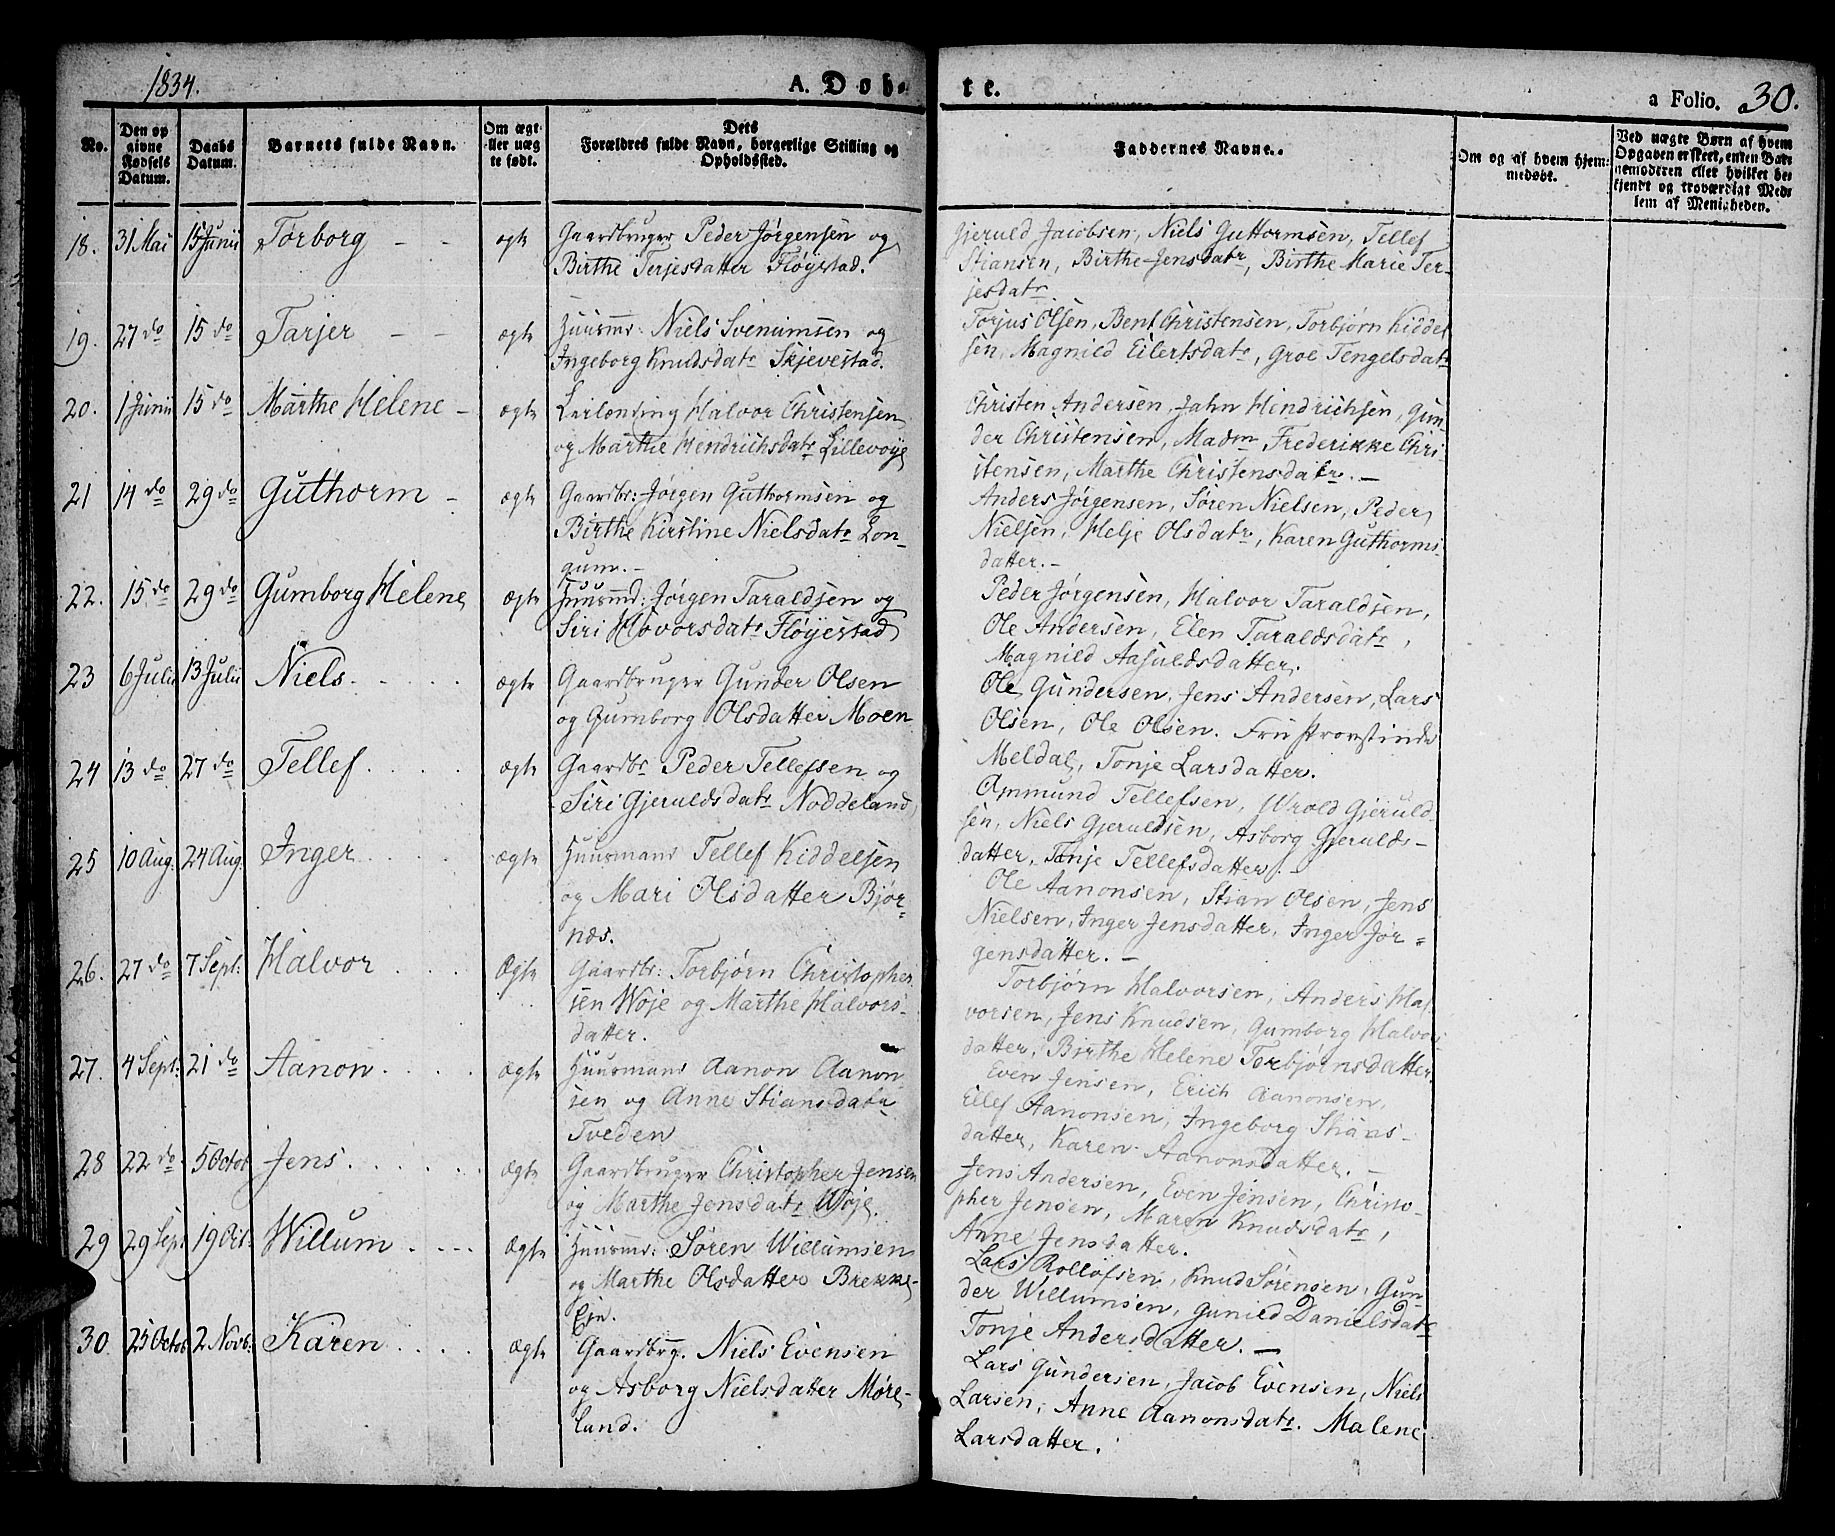 1834.
A. Døb-
te.
a Folio. 30.
No.
Den op
givne
Fødsels
Datum.
Daabs
Datum.
Barnets fulde Navn.
Om ægt-
eller uæg
te født.
Dets
Forældres fulde Navn, borgerlige Stilling og
Opholdssted.
Faddernes Navne.
Om og af hvem hjem-
medøbt.
Ved uægte Børn af hvem
Opgaven er skeet, enten Bar-
nemoderen eller hvilket be
kjendt og troværdigt Med-
lem af Menigheden.
18. 31 Mai 15 Junii Torborg - - ægte Gaardbruger Peder Jørgensen og
Birthe Terjesdatter Fløystad.
Gjeruld Jacobsen, Niels Guttormsen, Tellef
Stiansen, Birthe Jensdatr, Birthe Marie Ter-
jesdatr
19. 27 do 15 do Tarjer - - ægte Huusmd: Niels Svenumsen og
Ingeborg Knudsdatr Skjevestad.
Torjus Olsen, Bent Christensen, Torbjørn Kiddel
sen, Magnild Eilertsdatr, Groe Tengelsdatr
20. 1 Junii 15 do Marthe Helene - ægte Leilending Halvor Christensen
og Marthe Hendrichsdatr Lillevoye
Christen Andersen, Jahn Hendrichsen, Gun-
der Christensen, Madm Frederikke Chri-
stensen, Marthe Christensdatr. -
21 14 do 29 do Guthorm - ægte Gaardbr: Jørgen Guthormsen og
Birthe Kirstine Nielsdatr Lon-
gum. -
Anders Jørgensen, Søren Nielsen, Peder
Nielsen, Helje Olsdatr, Karen Guthorms-
datter. -
22. 15 do 29 do Gumborg Helene ægte Huusmd: Jørgen Taraldsen og
Siri Hovorsdatr Fløyestad
Peder Jørgensen, Halvor Taraldsen,
Ole Andersen, Elen Taraldsdatr,
Magnild Aasuldsdatter.
23 6 Julii 13 Julii Niels. ægte Gaardbruger Gunder Olsen
og Gumborg Olsdatter Moen
Ole Gundersen, Jens Andersen, Lars
Olsen, Ole Olsen. Fru Provstinde
Meldal, Tonje Larsdatter.
24 13 do 27 do Tellef. ægte Gaardbr Peder Tellefsen og
Siri Gjeruldsdatr Noddeland
Ommund Tellefsen, Wrold Gjeruld-
sen, Niels Gjeruldsen, Asborg Gjerulds-
datter, Tonje Tellefsdatter. -
25 10 Aug. 24 Aug. Inger ægte Huusmand Tellef Kiddelsen
og Mari Olsdatter Bjor-
næs.
Ole Aanonsen, Stian Olsen, Jens
Nielsen, Inger Jensdatter, Inger Jør-
gensdatter. -
26. 27 do 7 Sept: Halvor Ægte Gaardbr: Torbjørn Christopher
sen Woje og Marthe Halvors-
datter.
Torbjørn Halvorsen, Anders Hal
vorsen, Jens Knudsen, Gumborg Halvors
datter, Birthe Helene Torbjørnsdatter
27. 4 Sept: 21 do Aanon. ægte Huusmand Aanon Aanon-
sen og Anne Stiansdatr
Tveden
Even Jensen, Erich Aanonsen,
Ellef Aanonsen, Ingeborg Stians-
datter, Karen Aanonsdatter. -
28 22 do 5 Octob Jens. ægte Gaardbruger Christopher Jensen
og Marthe Jensdatr Woje.
Jens Andersen, Even Jensen, Christo-
pher Jensen, Maren Knudsdatr,
Anne Jensdatter.
29 29 Sept 19 Oct. Willum. Ægte Huusmd: Søren Willumsen
og Marthe Olsdatter Brekke-
Eje.
Lars Rollofsen, Knud Sørensen, Gun-
der Willumsen, Gunild Danielsdatr
Tonje Andersdatter. -
30 25 Octob 2 Novb: Karen ægte Gaardbrg. Niels Evensen
og Asborg Nielsdatter Møre-
land.
Lars Gundersen, Jacob Evensen, Niels
Larsen, Anne Aanonsdatr. Malene
Larsdatter.